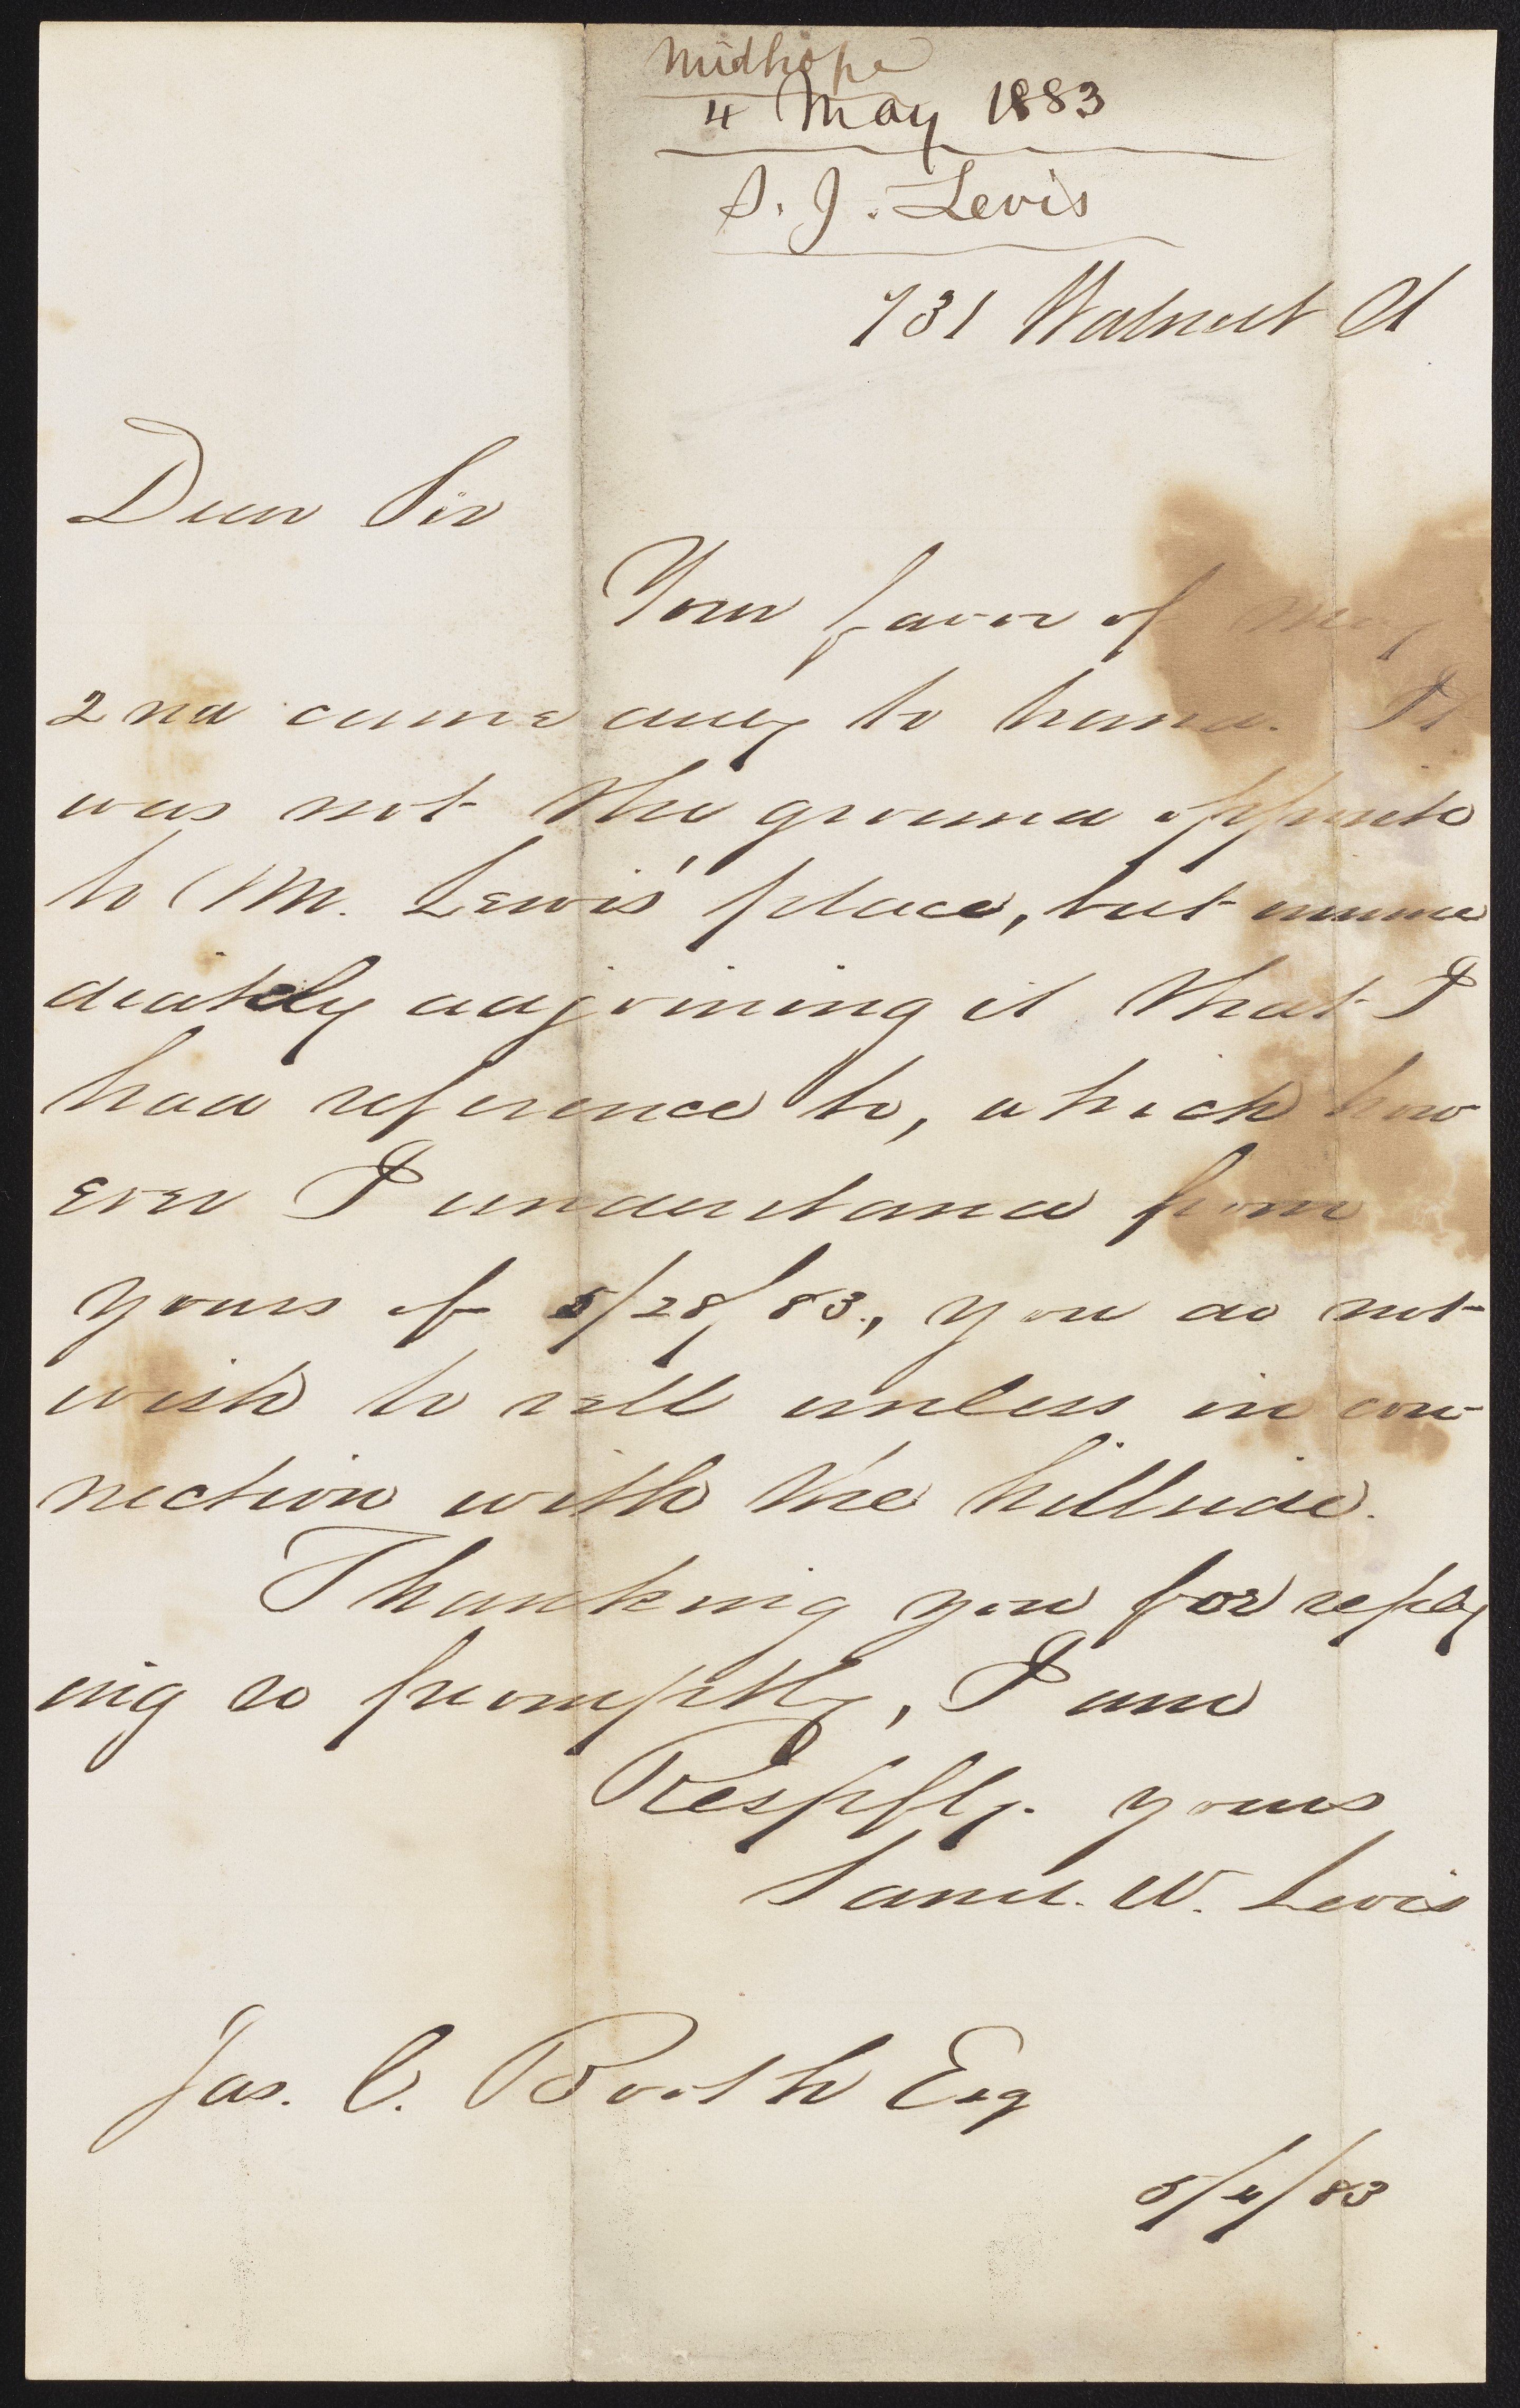 Midhope
4 May 1883
S. J. Levis
731 Walnut St
Dear Sir
Your favor of May
2nd came duly to hand. It
was not the ground opposite
to M. Lewis' place, but imme
diately adjoining it that I
had reference to, which how
ever I understand from
yours of 5/28/83., you do not
wish to sell unless in con-
nection with the hillside.
Thanking you for reply
ing so promptly, I am
Respfly. yours
Saml. W. Levis
Jas. C. Booth Esq
5/4/83